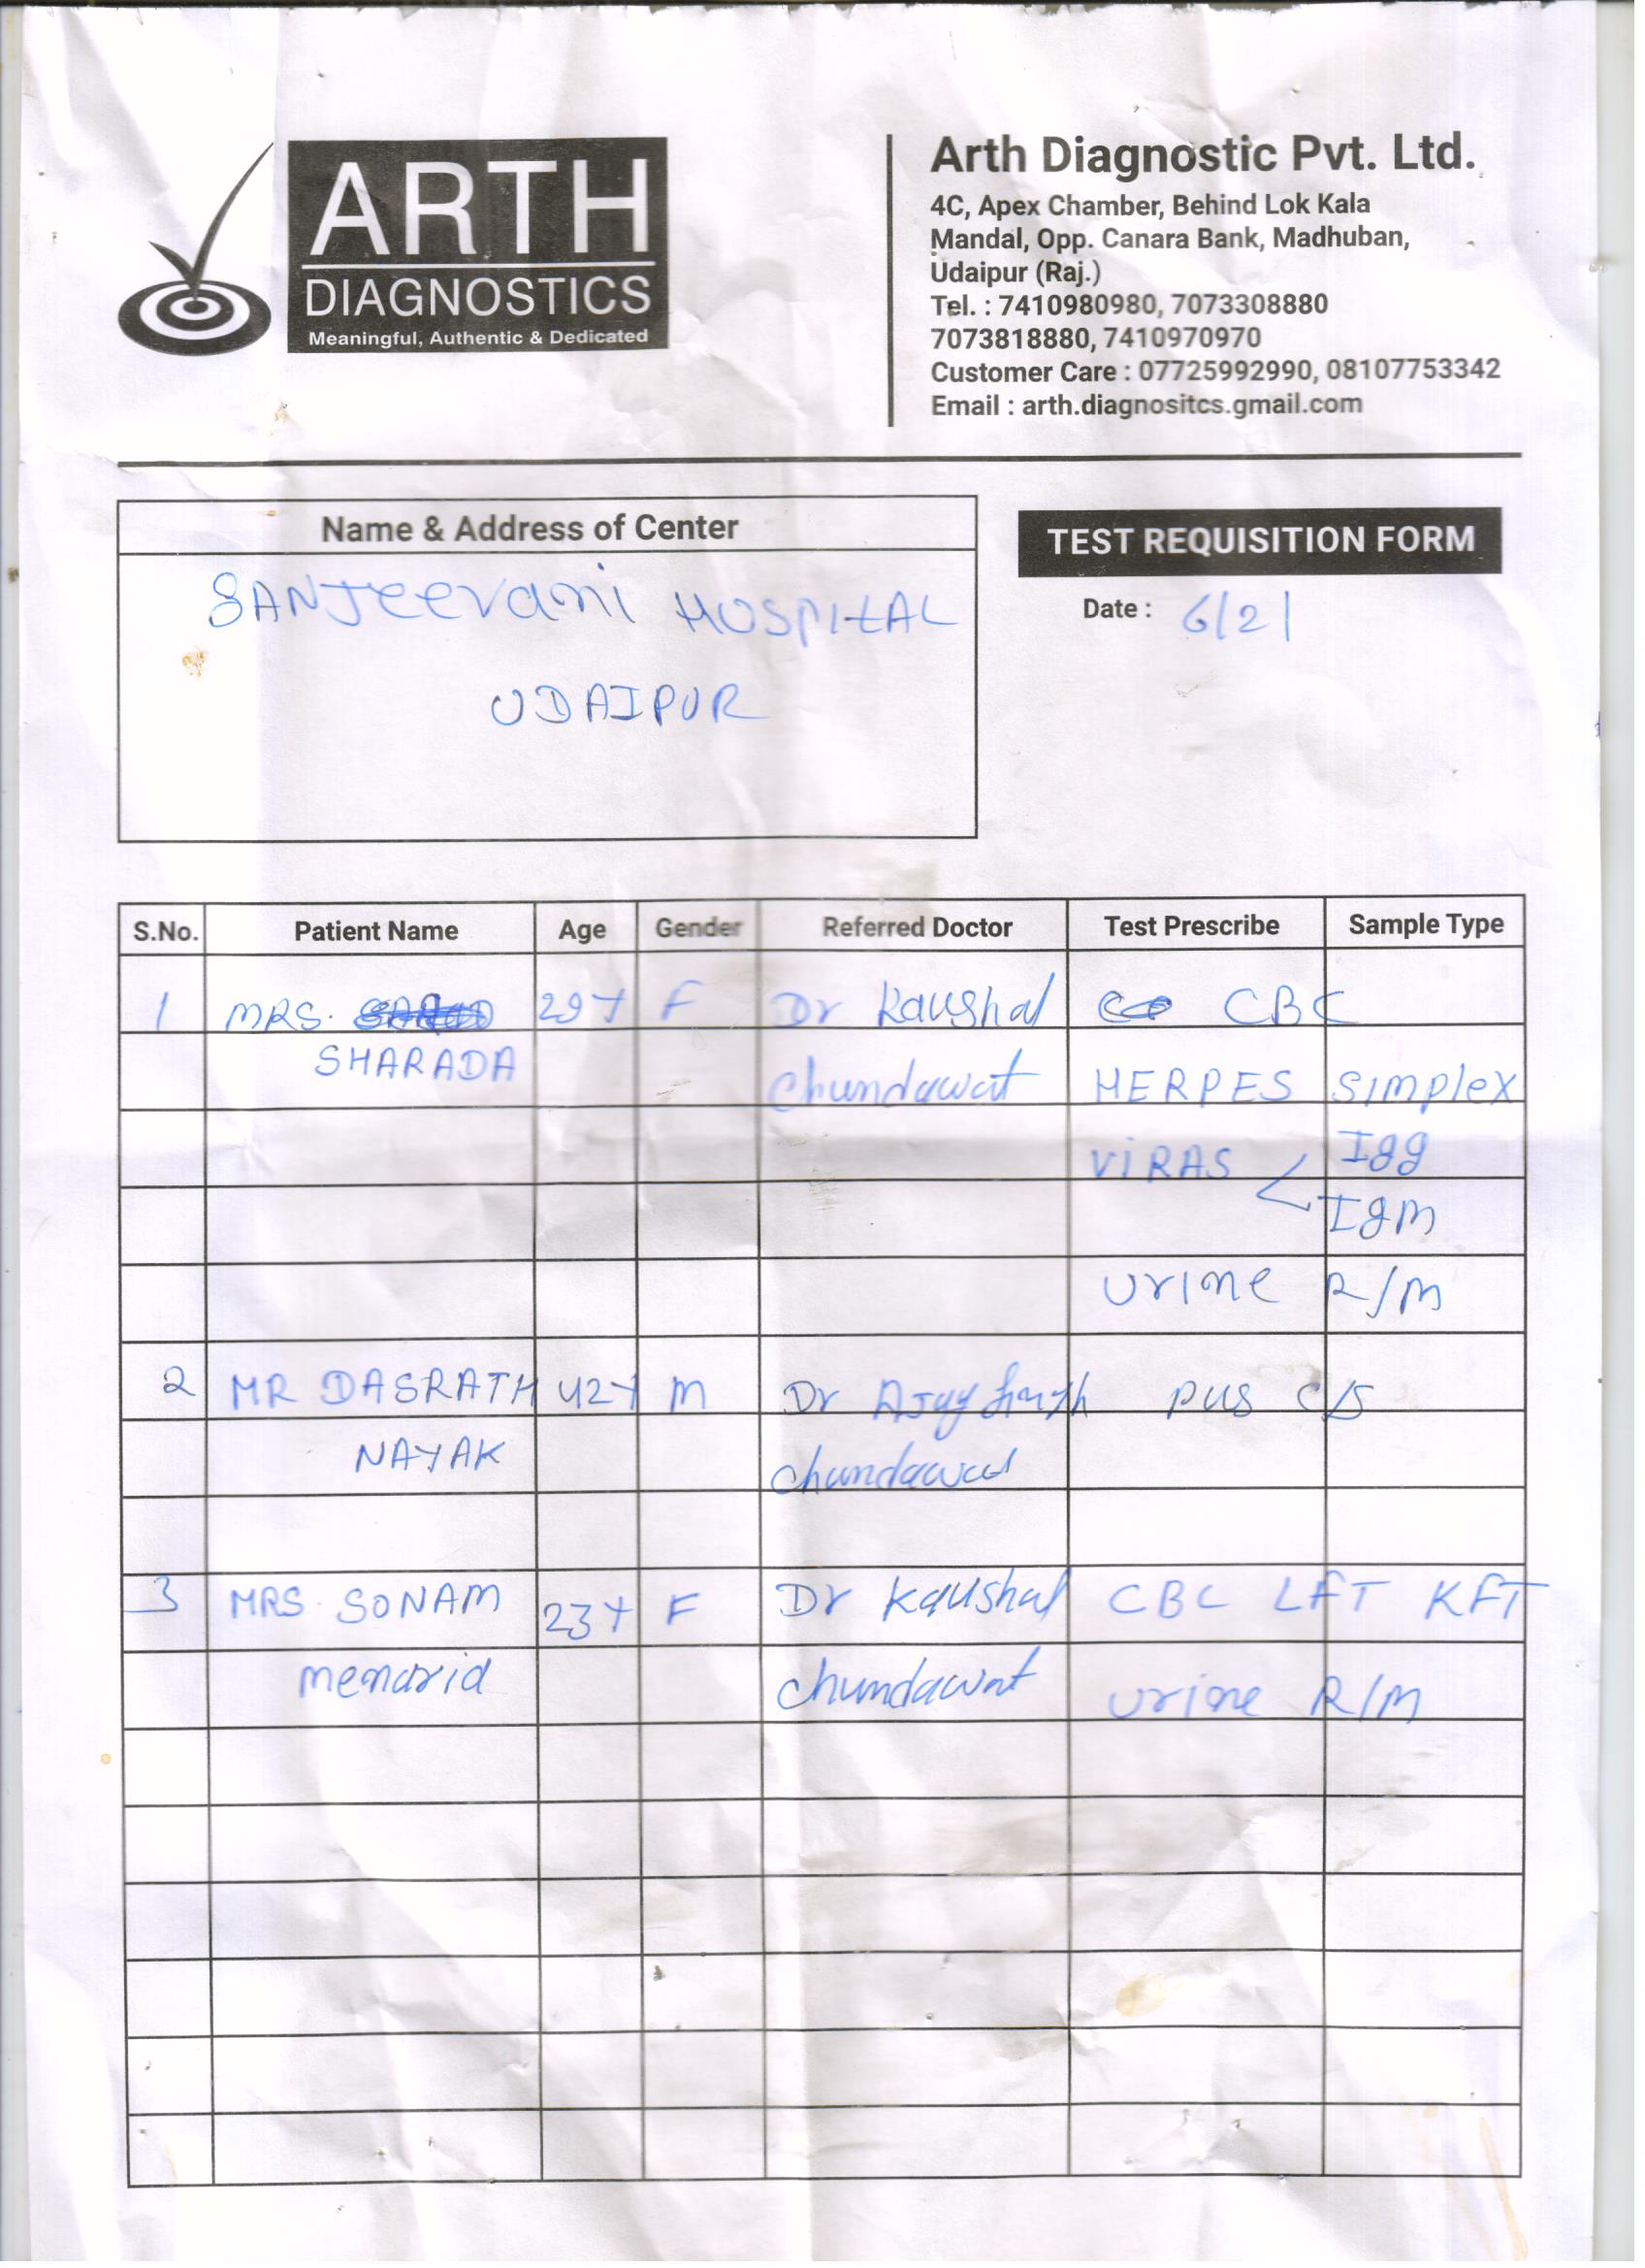 ARTH
DIAGNOSTICS
Meaningful, Authentic & Dedicated
Arth Diagnostic Pvt. Ltd.
4C, Apex Chamber, Behind Lok Kala
Mandal, Opp. Canara Bank, Madhuban,
Udaipur (Raj.)
Tel. : 7410980980, 7073308880
7073818880, 7410970970
Customer Care : 07725992990, 08107753342
Email : arth.diagnositcs.gmail.com
Name & Address of Center
SANJeevani HOSPITAL
UDAIPUR
TEST REQUISITION FORM
Date : 6/2/
S.No. Patient Name Age Gender Referred Doctor Test Prescribe Sample Type
1 MRS. 29Y F Dr Kaushal CBC
SHARADA Chundawat HERPES SImplex
ViRAS Igg
Igm
Urine R/m
2 MR DASRATH 42Y m Dr Ajay pus c/s
NAYAK Chundawat
3 MRS SONAM 23Y F Dr Kaushal CBC LFT KFT
menaria Chundawat Urine R/m